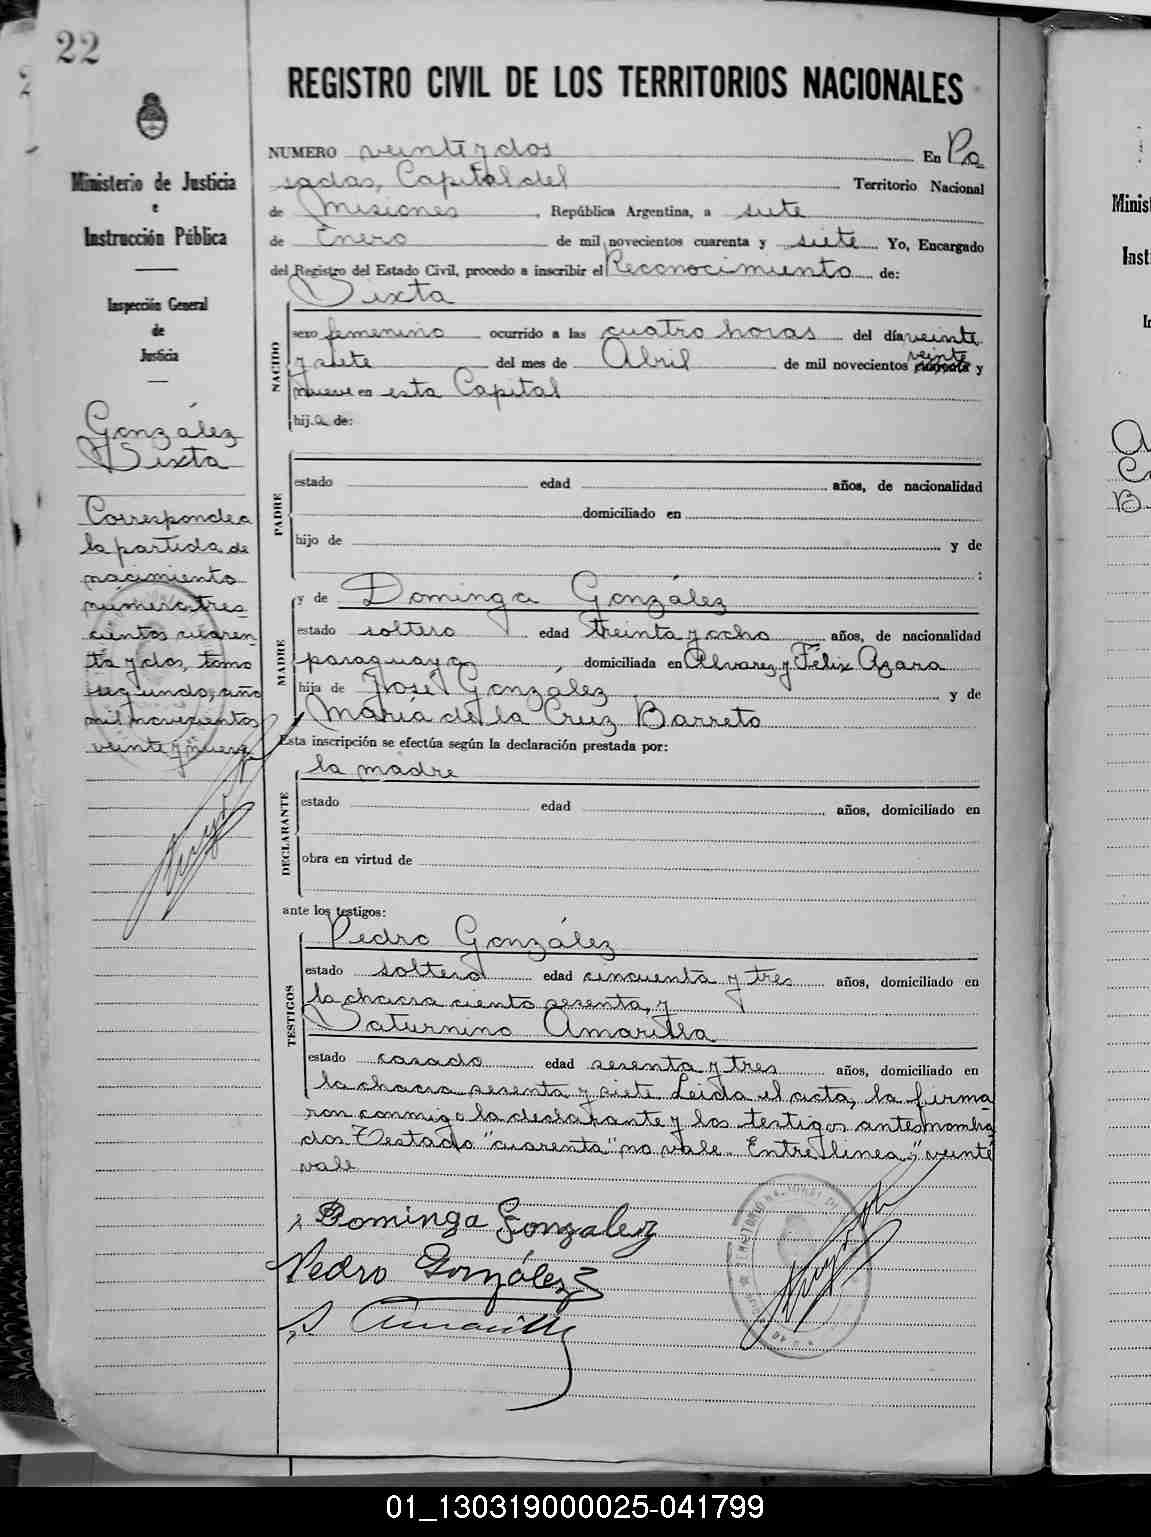 22
Ministerio de Justicia
e
Instrucción Pública
Inspección General
de
Justicia
González
Sixta
Corresponde a
la partida de
nacimiento
número tres-
cientos cuaren
ta y dos, tomo
segundo, año
mil novecientos
veinte y nueve
REGISTRO CIVIL DE LOS TERRITORIOS NACIONALES
NUMERO veinte y dos En Po
sadas, Capital del Territorio Nacional
de Misiones, República Argentina, a siete
de Enero de mil novecientos cuarenta y siete Yo, Encargado
del Registro del Estado Civil, procedo a inscribir el Reconocimiento de:
Sixta
NACIDO
sexo femenino ocurrido a las cuatro horas del día veinte
y siete del mes de Abril de mil novecientos veinte cuarenta y
nueve en esta Capital
hija de:
PADRE
estado edad años, de nacionalidad
domiciliado en
hijo de y de
:
MADRE
y de Dominga González
estado soltera edad treinta y ocho años, de nacionalidad
paraguaya, domiciliada en Alvarez y Félix Azara
hija de José González y de
María de la Cruz Barreto
Esta inscripción se efectúa según la declaración prestada por:
la madre
DECLARANTE
estado edad años, domiciliado en
obra en virtud de
ante los testigos:
TESTIGOS
Pedro González
estado soltero edad cincuenta y tres años, domiciliado en
la chacra ciento sesenta, y
Saturnino Amarilla
estado casado edad sesenta y tres años, domiciliado en
la chacra sesenta y siete Leida el acta, la firma-
ron conmigo la declarante y los testigos antes nombra
dos Testado "cuarenta" no vale. Entre linea: "veinte"
vale
Dominga Gonzalez
Pedro González
S. Amarilla
Minist
Inst
I
A
C
B
01_130319000025-041799